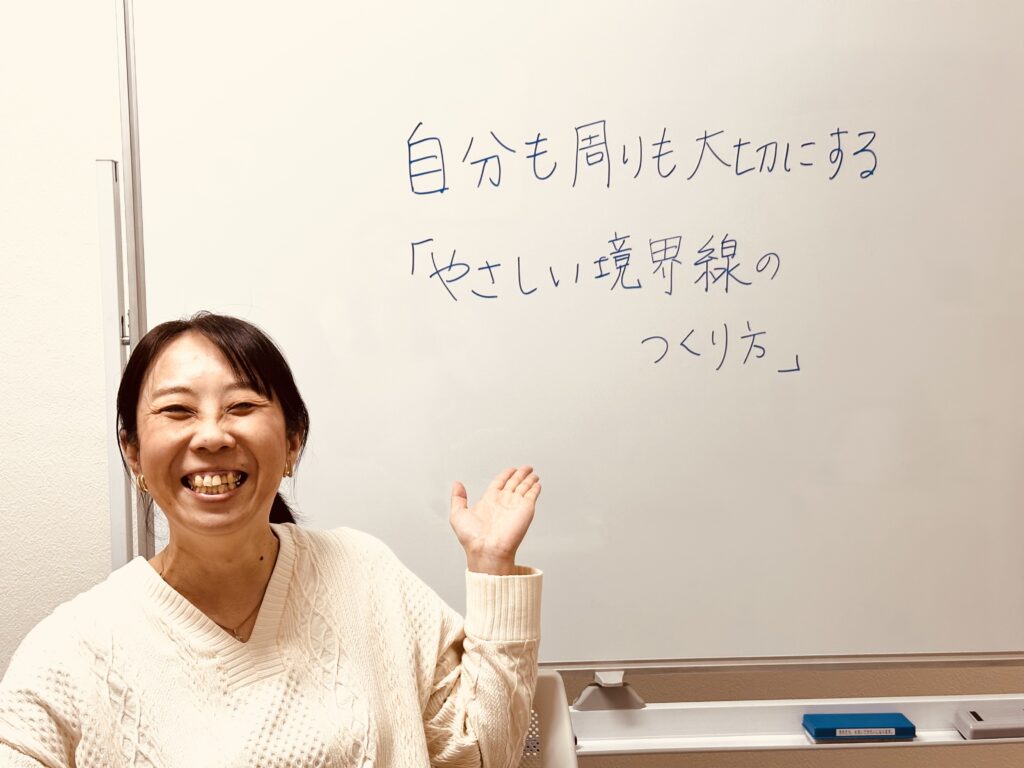 自分も周りも大切にする
「やさしい境界線の
つくり方」